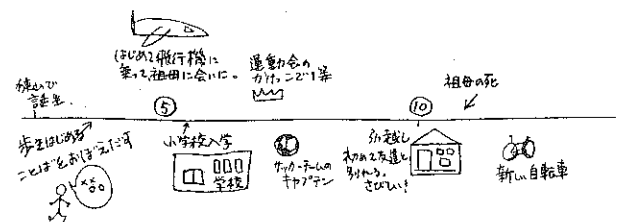 はじめて飛行機に
乗って、祖母に会いに。
運動会の
かけっこで1等
祖母の死
誕生
⑤
⑩
歩きはじめる
ことばをおぼえだす
小学校入学
学校
サッカーチームの
キャプテン
引越し
初めて友達と
別れる。
さびしい!
新しい自転車